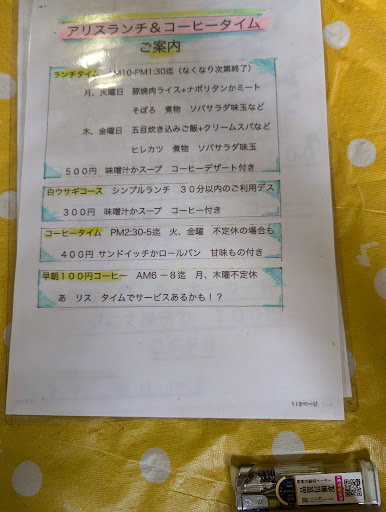 アリスランチ＆コーヒータイム
ご案内
ランチタイム AM10-PM1:30迄（なくなり次第終了）
月、火曜日 豚焼肉ライス+ナポリタンかミート
そぼろ 煮物 ソバサラダ味玉など
木、金曜日 五目炊き込みご飯+クリームスパなど
ヒレカツ 煮物 ソバサラダ味玉
５００円 味噌汁かスープ コーヒーデザート付き
白ウサギコース シンプルランチ ３０分以内のご利用デス
３００円 味噌汁かスープ コーヒー付き
コーヒータイム PM2:30-5迄 火、金曜 不定休の場合も
４００円 サンドイッチかロールパン 甘味もの付き
早朝１００円コーヒー AM6－８迄 月、木曜不定休
あ リス タイムでサービスあるかも！？